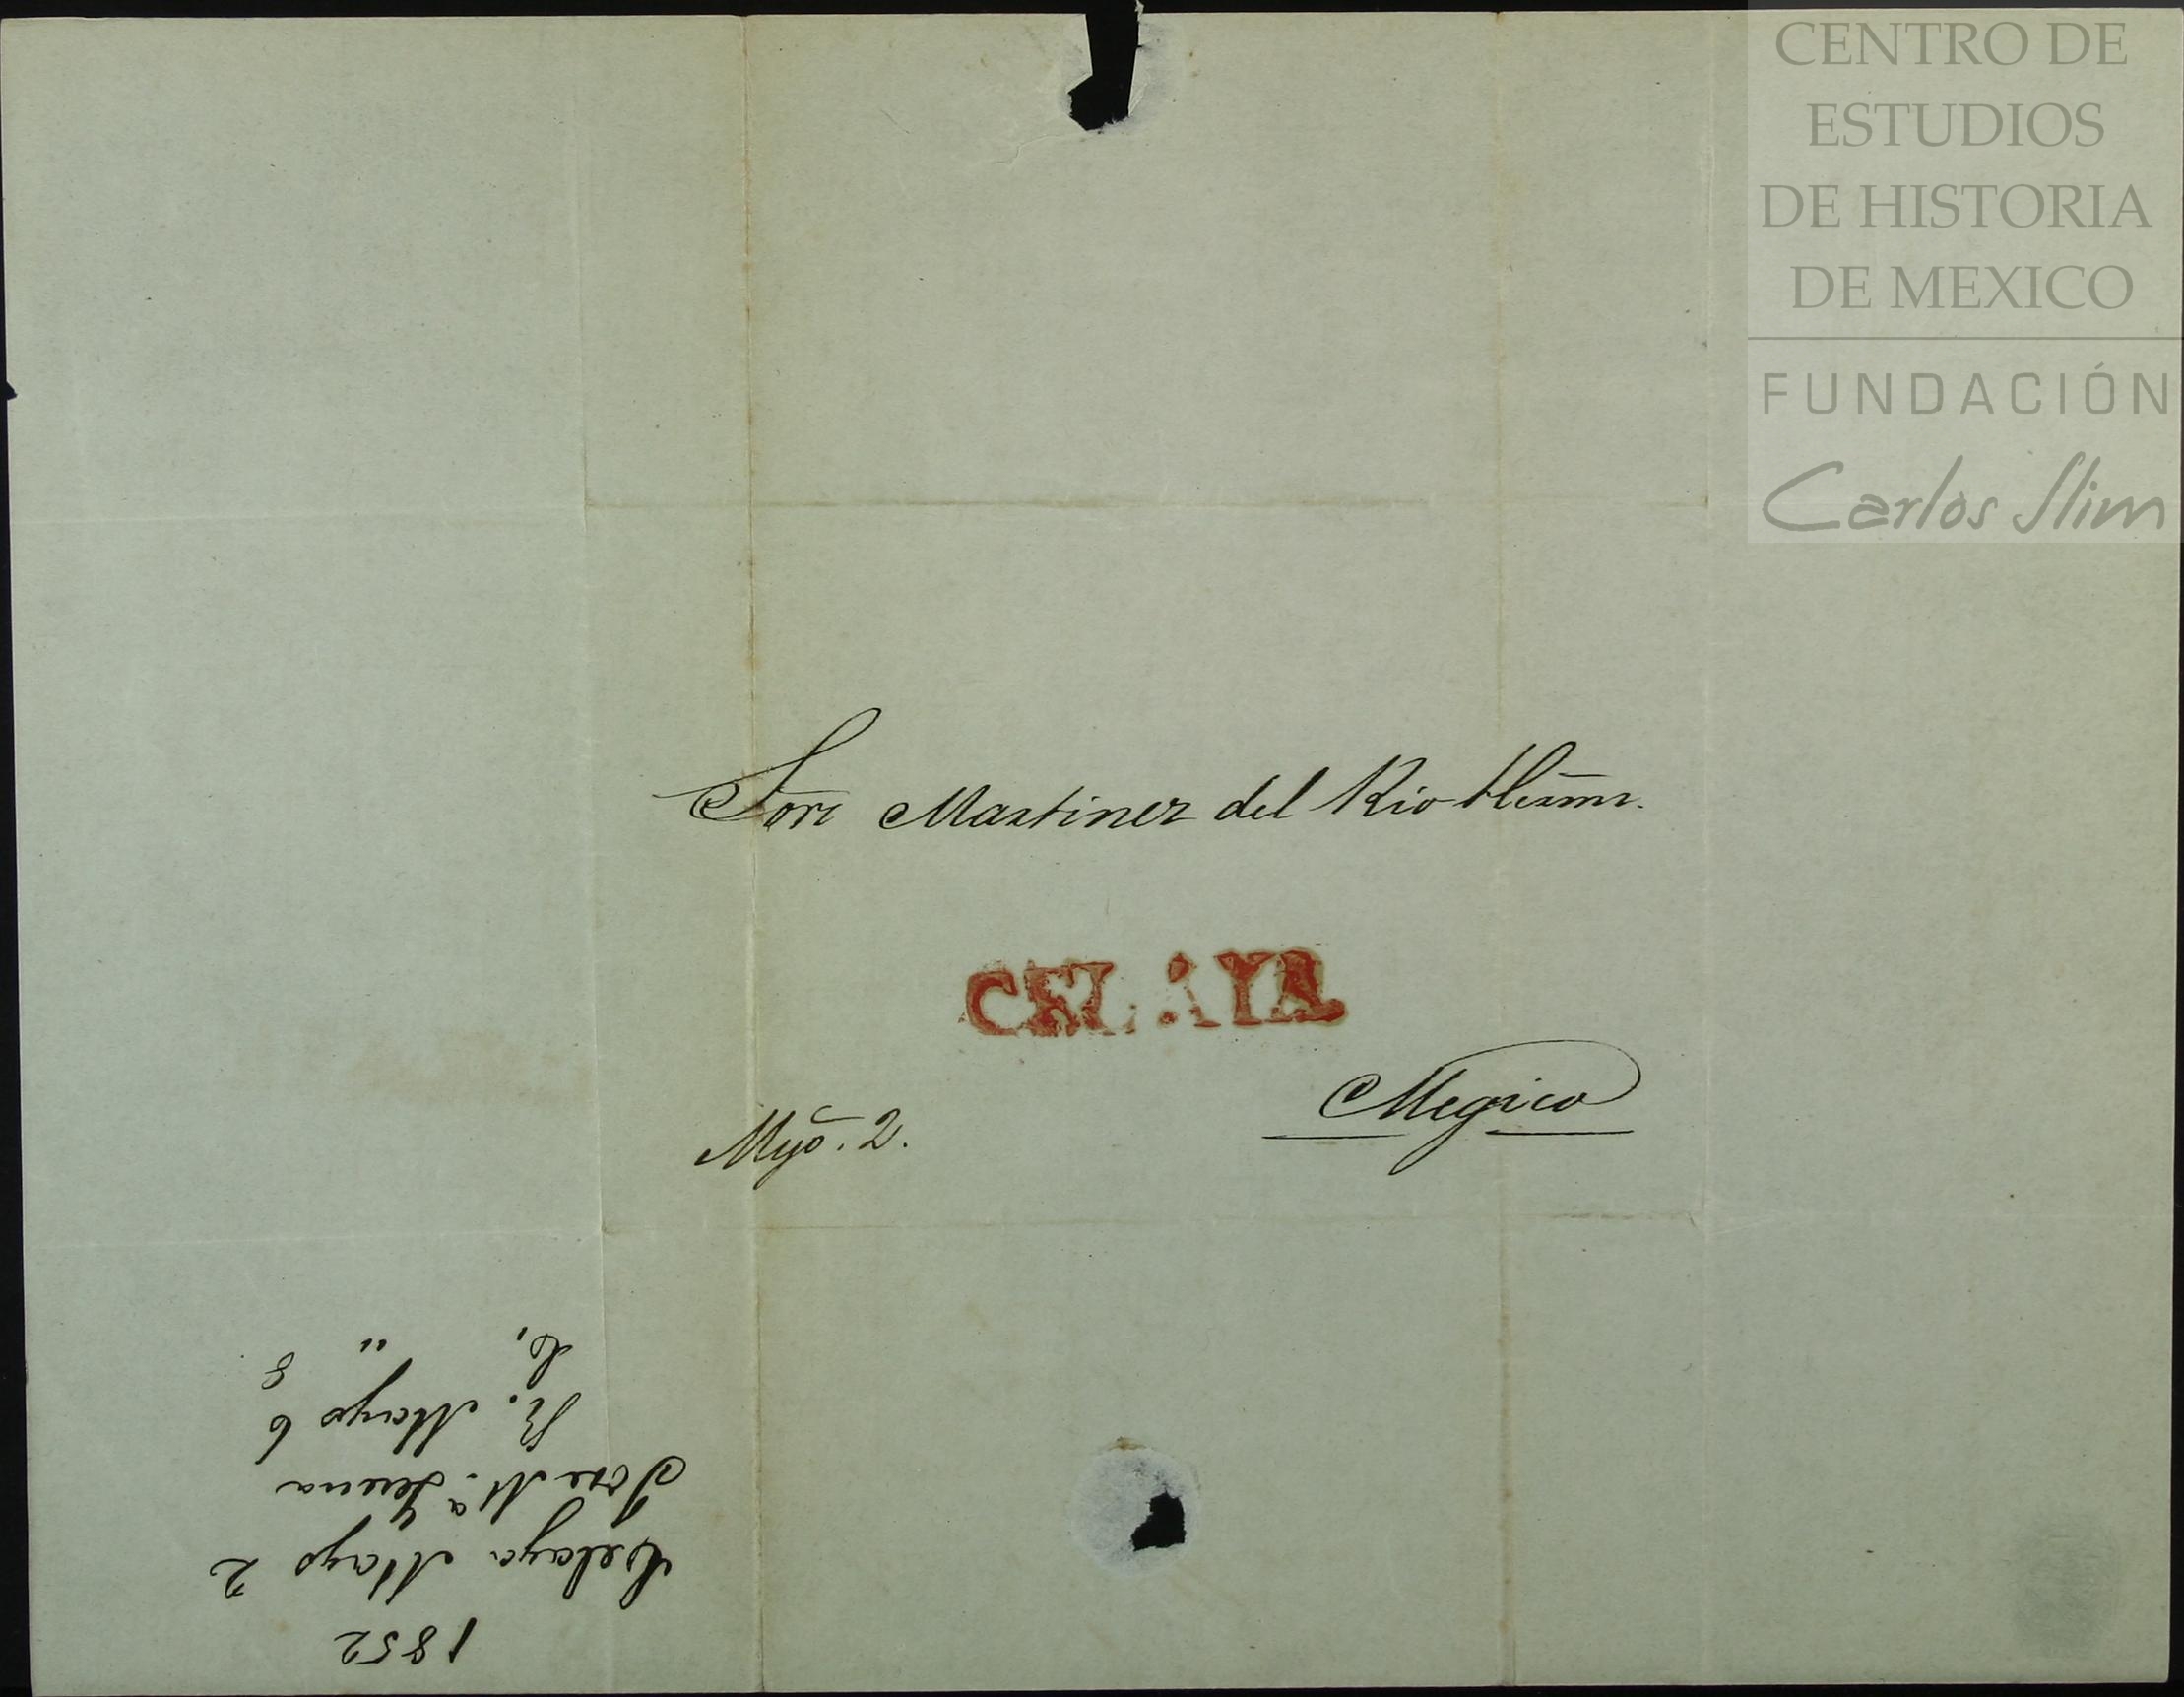 CENTRO DE
ESTUDIOS
DE HISTORIA
DE MEXICO
FUNDACIÓN
Carlos Slim
Sors Martinez del Rio Herms.
CELAYA
Megico
Myo. 2.
1852
Celaya Mayo 2
Jose Ma.
R. Mayo 6
C, " 8